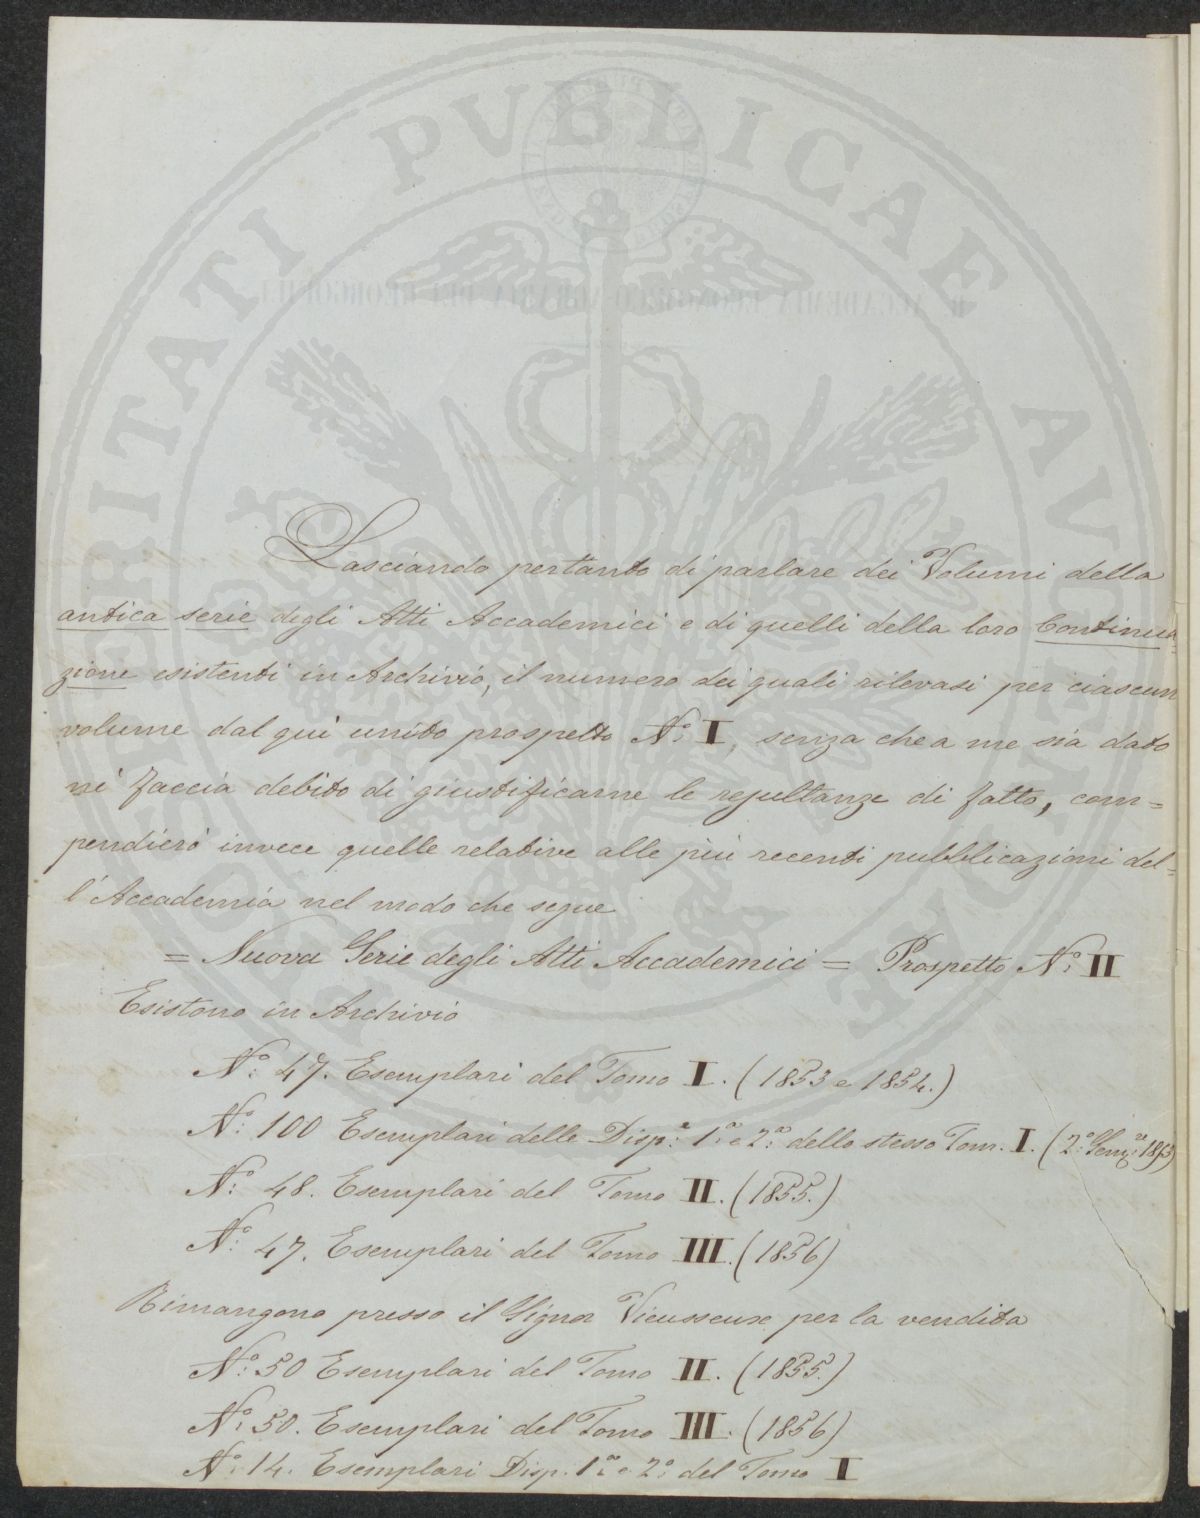 PROSPERITATI PVBLICAE AVGENDAE
R. ACCADEMIA ECONOMICO-AGRARIA DEI GEORGOFILI
Lasciando pertanto di parlare dei Volumi della
antica serie degli Atti Accademici e di quelli della loro Continua=
zione esistenti in Archivio, il numero dei quali rilevasi per ciascun
volume dal qui unito prospetto N.º I, senza che a me sia dato
nè faccia debito di giustificarne le resultanze di fatto, com=
pendierò invece quelle relative alle più recenti pubblicazioni del=
l'Accademia nel modo che segue
= Nuova Serie degli Atti Accademici = Prospetto N.º II
Esistono in Archivio
N.º 47. Esemplari del Tomo I. (1853 e 1854.)
N.º 100 Esemplari delle Disp.e 1.a e 2.a dello stesso Tom. I. (2.º Sem.re 1853)
N.º 48. Esemplari del Tomo II. (1855.)
N.º 47. Esemplari del Tomo III. (1856)
Rimangono presso il Signor Vieusseux per la vendita
N.º 50 Esemplari del Tomo II. (1855.)
N.º 50. Esemplari del Tomo III. (1856)
N.º 14. Esemplari Disp. 1.a e 2.a del Tomo I